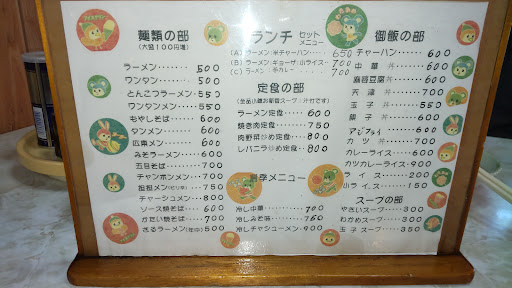 麺類の部
(大盛100円増)
ラーメン 500
ワンタン 500
とんこつラーメン 550
ワンタンメン 550
もやしそば 600
タンメン 600
広東メン 600
みそラーメン 600
五目そば 700
チャンポンメン 750
担担メン(ピリ辛) 750
チャーシュメン 800
ソース焼そば 600
かたい焼そば 700
ざるラーメン(年中) 500
ランチ セットメニュー
(A) ラーメン・半チャーハン 650
(B) ラーメン・ギョーザ・小ライス 700
(C) ラーメン・半カレー 700
定食の部
ラーメン定食 600
焼き肉定食 750
肉野菜炒め定食 800
レバニラ炒め定食 800
夏季メニュー
冷し中華 700
冷しみそ味 750
冷しチャシューメン 900
御飯の部
チャーハン 600
中華丼 600
麻婆豆腐丼 650
天津丼 650
玉子丼 550
親子丼 600
アジフライ 600
カツ丼 700
カレーライス 600
カツカレーライス 900
ライス 200
小ライス 150
スープの部
やさいスープ 350
わかめスープ 300
玉子スープ 350